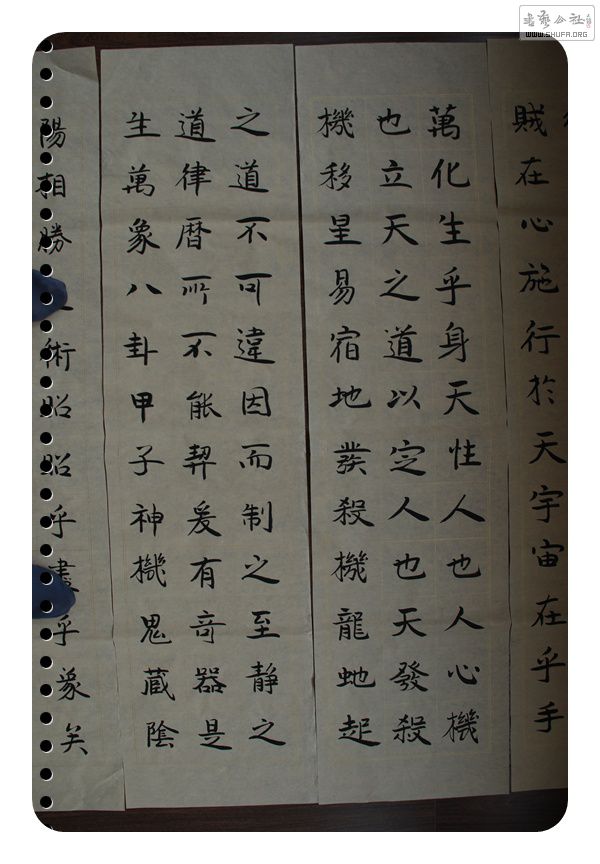 書藝公社
WWW.SHUFA.ORG
賊在心施行於天宇宙在乎手
萬化生乎身天性人也人心機
也立天之道以定人也天發殺
機移星易宿地發殺機龍虵起
之道不可違因而制之至静之
道律暦所不能契爰有奇器是
生萬象八卦甲子神機鬼藏陰
陽相勝之術昭昭乎盡乎象矣